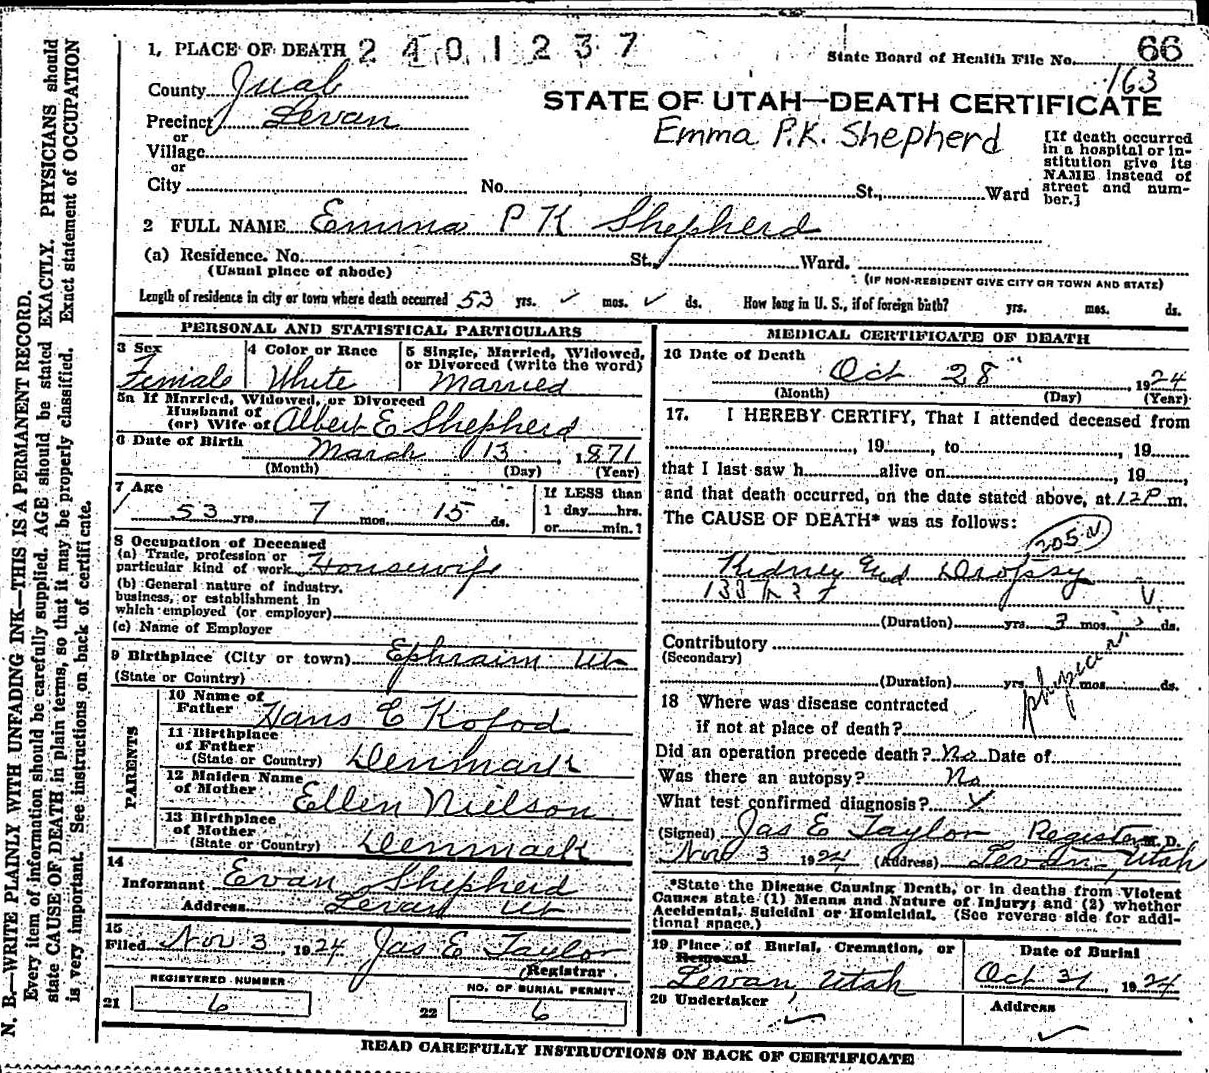 1, PLACE OF DEATH 2401237
State Board of Health File No. 66
163
County Juab
STATE OF UTAH—DEATH CERTIFICATE
Precinct Levan
Emma P.K. Shepherd
or
Village
or
City No. St., Ward
[If death occurred
in a hospital or in-
stitution give its
NAME instead of
street and num-
ber.]
2 FULL NAME Emma P K Shepherd
(a) Residence. No. St., Ward.
(Usual place of abode) (IF NON-RESIDENT GIVE CITY OR TOWN AND STATE)
Length of residence in city or town where death occurred 53 yrs. ✓ mos. ✓ ds. How long in U. S., if of foreign birth? yrs. mos. ds.
PERSONAL AND STATISTICAL PARTICULARS
3 Sex
Female
4 Color or Race
White
5 Single, Married, Widowed,
or Divorced (write the word)
Married
5a If Married, Widowed, or Divorced
Husband of
(or) Wife of Albert E Shepherd
6 Date of Birth March 13, 1871
(Month) (Day) (Year)
7 Age
53 yrs. 7 mos. 15 ds.
If LESS than
1 day hrs.
or min.?
8 Occupation of Deceased
(a) Trade, profession or
particular kind of work Housewife
(b) General nature of industry,
business, or establishment in
which employed (or employer)
(c) Name of Employer
9 Birthplace (City or town) Ephraim Ut
(State or Country)
PARENTS
10 Name of
Father Hans C Kofod
11 Birthplace
of Father
(State or Country) Denmark
12 Maiden Name
of Mother Ellen Nielson
13 Birthplace
of Mother
(State or Country) Denmark
14
Informant Evan Shepherd
Address Levan Ut
15
Filed Nov 3, 1924 Jas E Taylor
Registrar.
REGISTERED NUMBER
21 6
NO. OF BURIAL PERMIT
22 6
MEDICAL CERTIFICATE OF DEATH
16 Date of Death
Oct 28, 1924
(Month) (Day) (Year)
17. I HEREBY CERTIFY, That I attended deceased from
, 19, to , 19
that I last saw h alive on , 19,
and that death occurred, on the date stated above, at 12 P m.
The CAUSE OF DEATH* was as follows:
205
Kidney and Dropsy
(Duration) yrs. 3 mos. ds.
Contributory
(Secondary)
(Duration) yrs. mos. ds.
physician
18 Where was disease contracted
if not at place of death?
Did an operation precede death? No Date of
Was there an autopsy? No
What test confirmed diagnosis? ✓
(Signed) Jas E Taylor Registrar M.D.
Nov 3 1924 (Address) Levan, Utah
*State the Disease Causing Death, or in deaths from Violent
Causes state (1) Means and Nature of Injury; and (2) whether
Accidental, Suicidal or Homicidal. (See reverse side for addi-
tional space.)
19 Place of Burial, Cremation, or
Removal
Levan Utah
Date of Burial
Oct 31, 1924
20 Undertaker
✓
Address
✓
READ CAREFULLY INSTRUCTIONS ON BACK OF CERTIFICATE
N. B.—WRITE PLAINLY WITH UNFADING INK—THIS IS A PERMANENT RECORD.
Every item of information should be carefully supplied. AGE should be stated EXACTLY. PHYSICIANS should
state CAUSE OF DEATH in plain terms, so that it may be properly classified. Exact statement of OCCUPATION
is very important. See instructions on back of certificate.